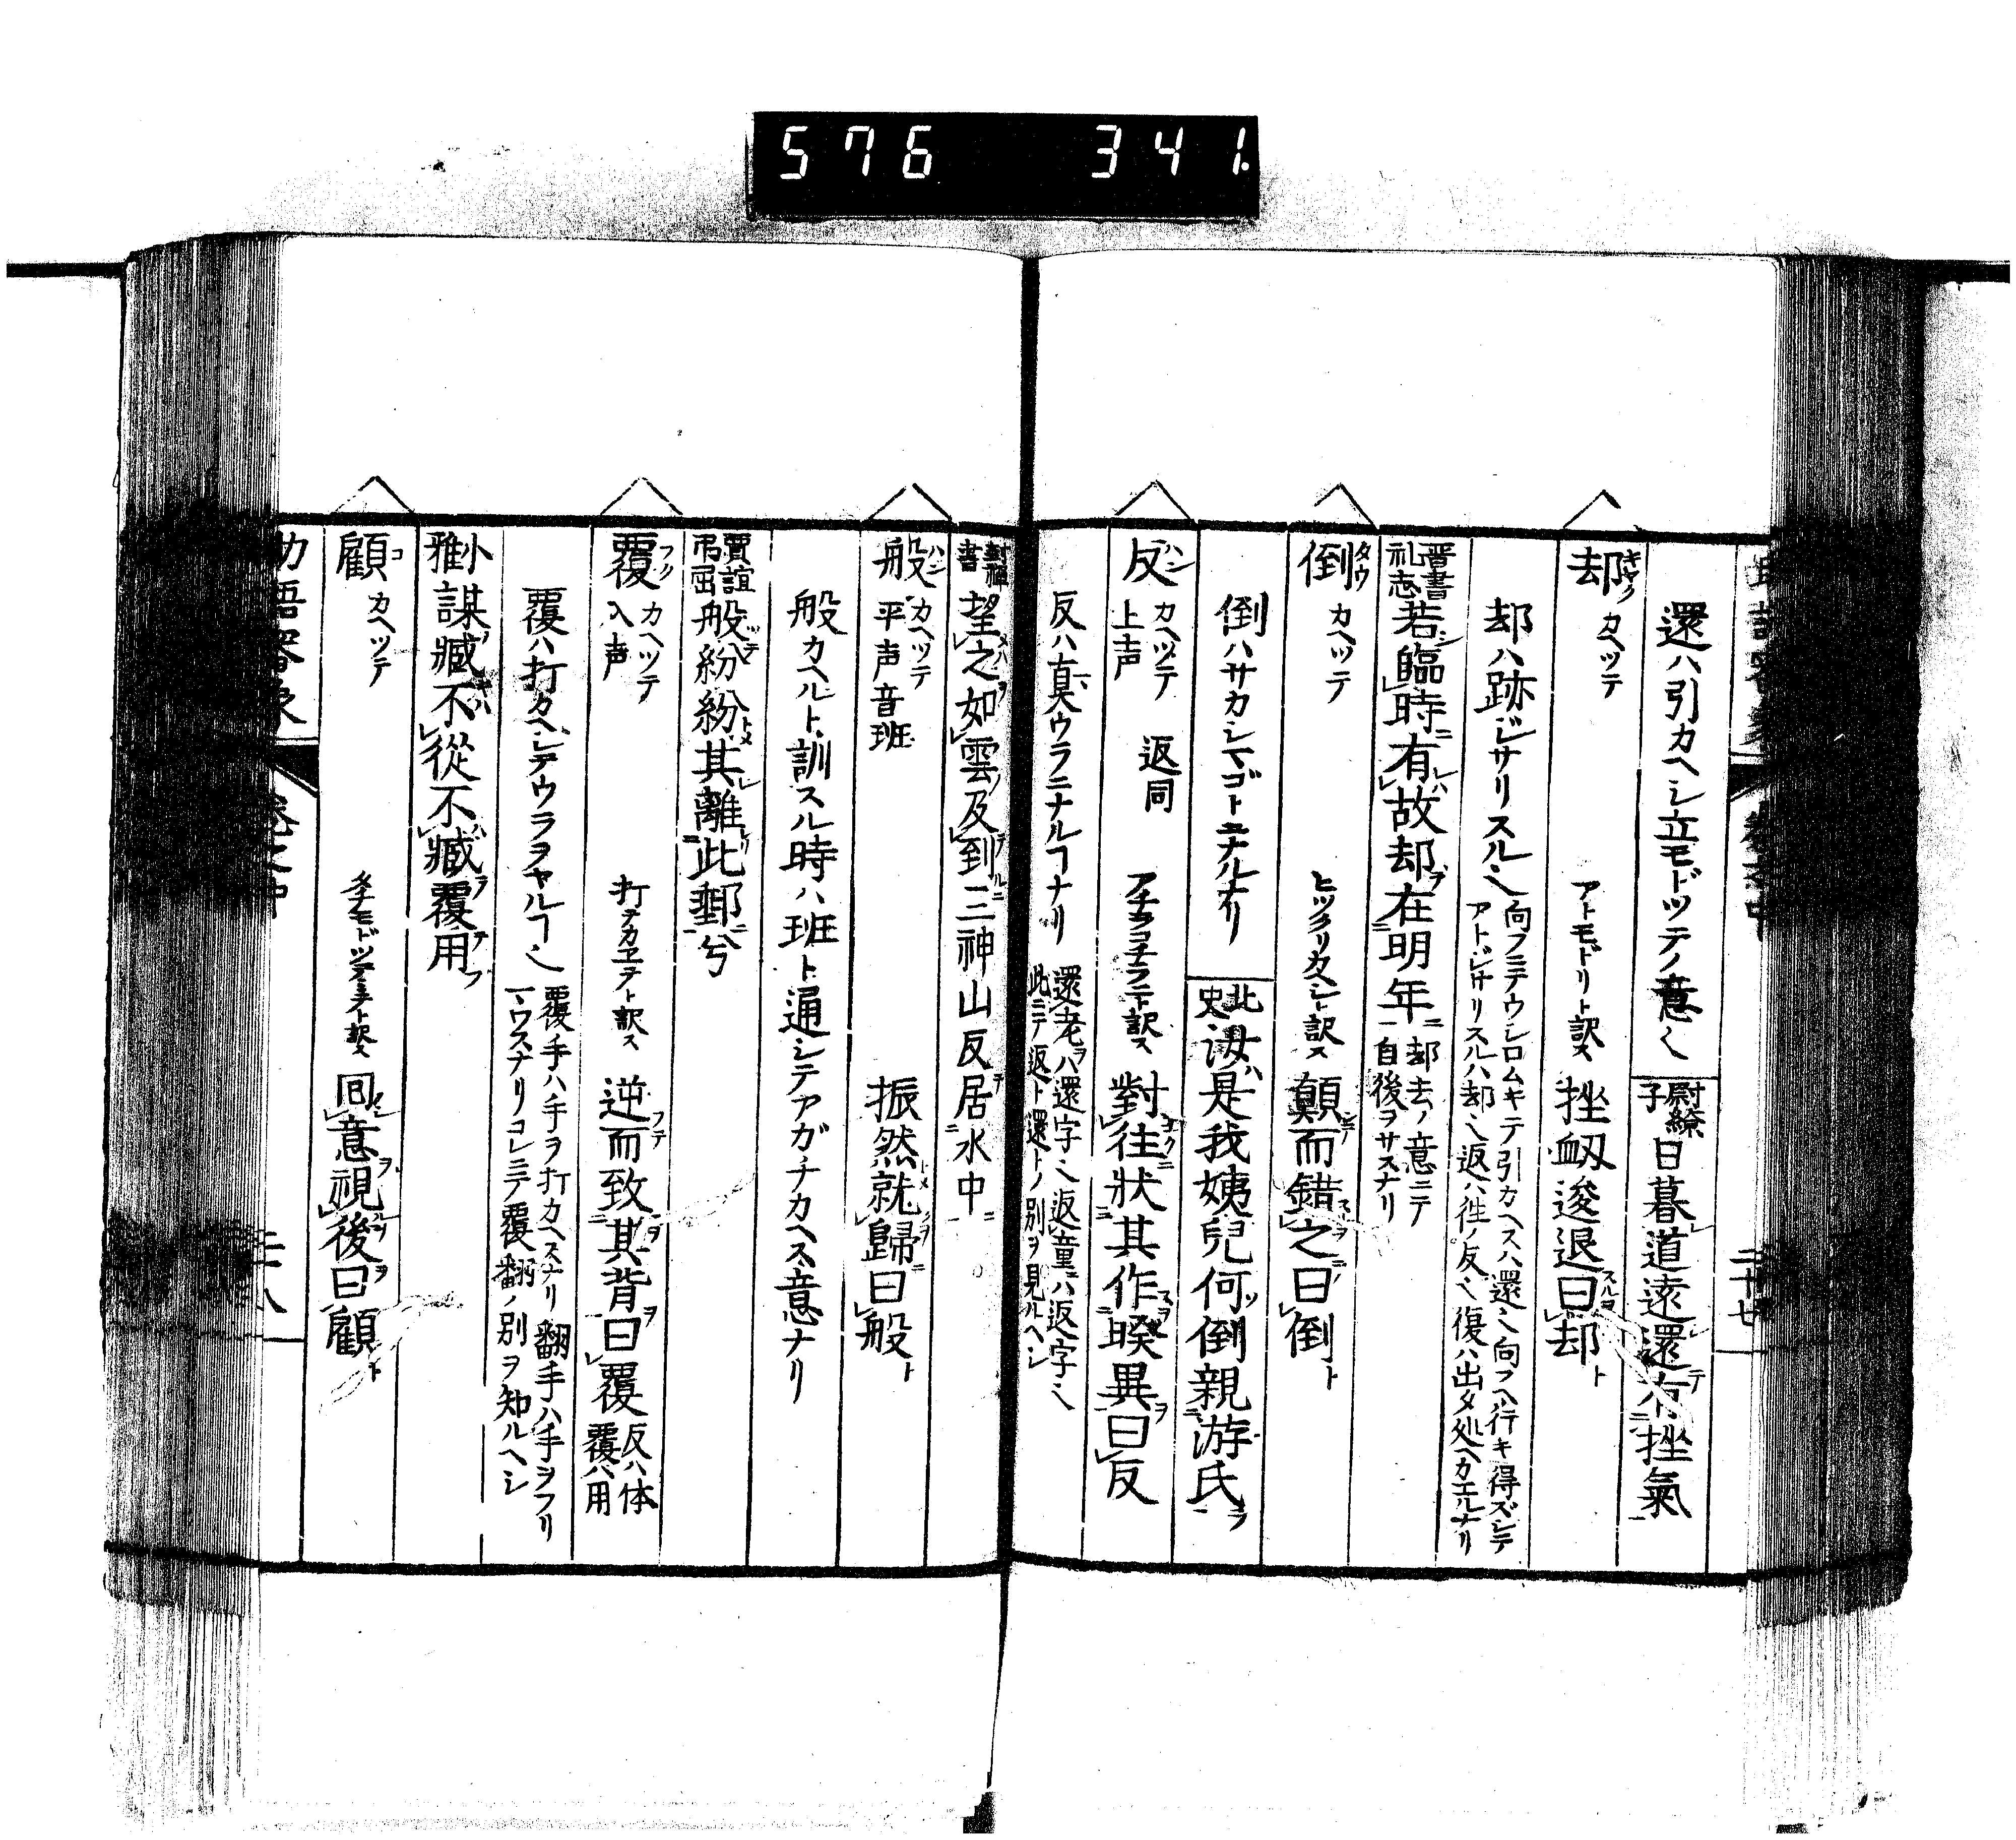 576 341.
還ハ引カヘシ立モドツテノ意〱 尉繚子 日暮道遠還有挫氣
却 キヤク カヘツテ アトモドリト訳ス 挫衂逡退曰却
却ハ跡ジサリスル〱 向フニテウシロムキテ引カヘスハ還〱向フヘ行キ得ズシテ
アトジサリスルハ却〱返ハ徃ノ反〱復ハ出タ処ヘカエルナリ
晋書礼志 若臨時有故却在明年 却去ノ意ニテ
自後ヲサスナリ
倒 タウ カヘツテ ヒツクリカヘシト訳ス 顛而錯之曰倒
倒ハサカシマゴトニナルナリ 北史 汝是我姨兒何倒親游氏
反 ハン カヘツテ 上声 返同 アチラコチラニト訳ス 對往状其作暌異曰反
反ハ真ウラニナルフナリ 還老ヲハ還字〱返童ニハ返字〱
此ニテ返ト還トノ別ヲ見ルヘシ
封禅書 望之如雲及到三神山反居水中
般 ハン カヘツテ 平声音班 振然就歸曰般
般カヘルト訓スル時ハ班ト通シテアガチカヘス意ナリ
賈誼弔屈 般紛紛其離此郵兮
覆 フク カヘツテ 入声 打チカヱヲト訳ス 逆而致其背曰覆 反ハ体
覆ハ用
覆ハ打カヘシテウラヲヤルフ〱 覆手ハ手ヲ打カヘスナリ翻手ハ手ヲフリ
ウスナリコレニテ覆翻ノ別ヲ知ルヘシ
小雅 謀臧不從不臧覆用
顧 コ カヘツテ 囘意視後曰顧